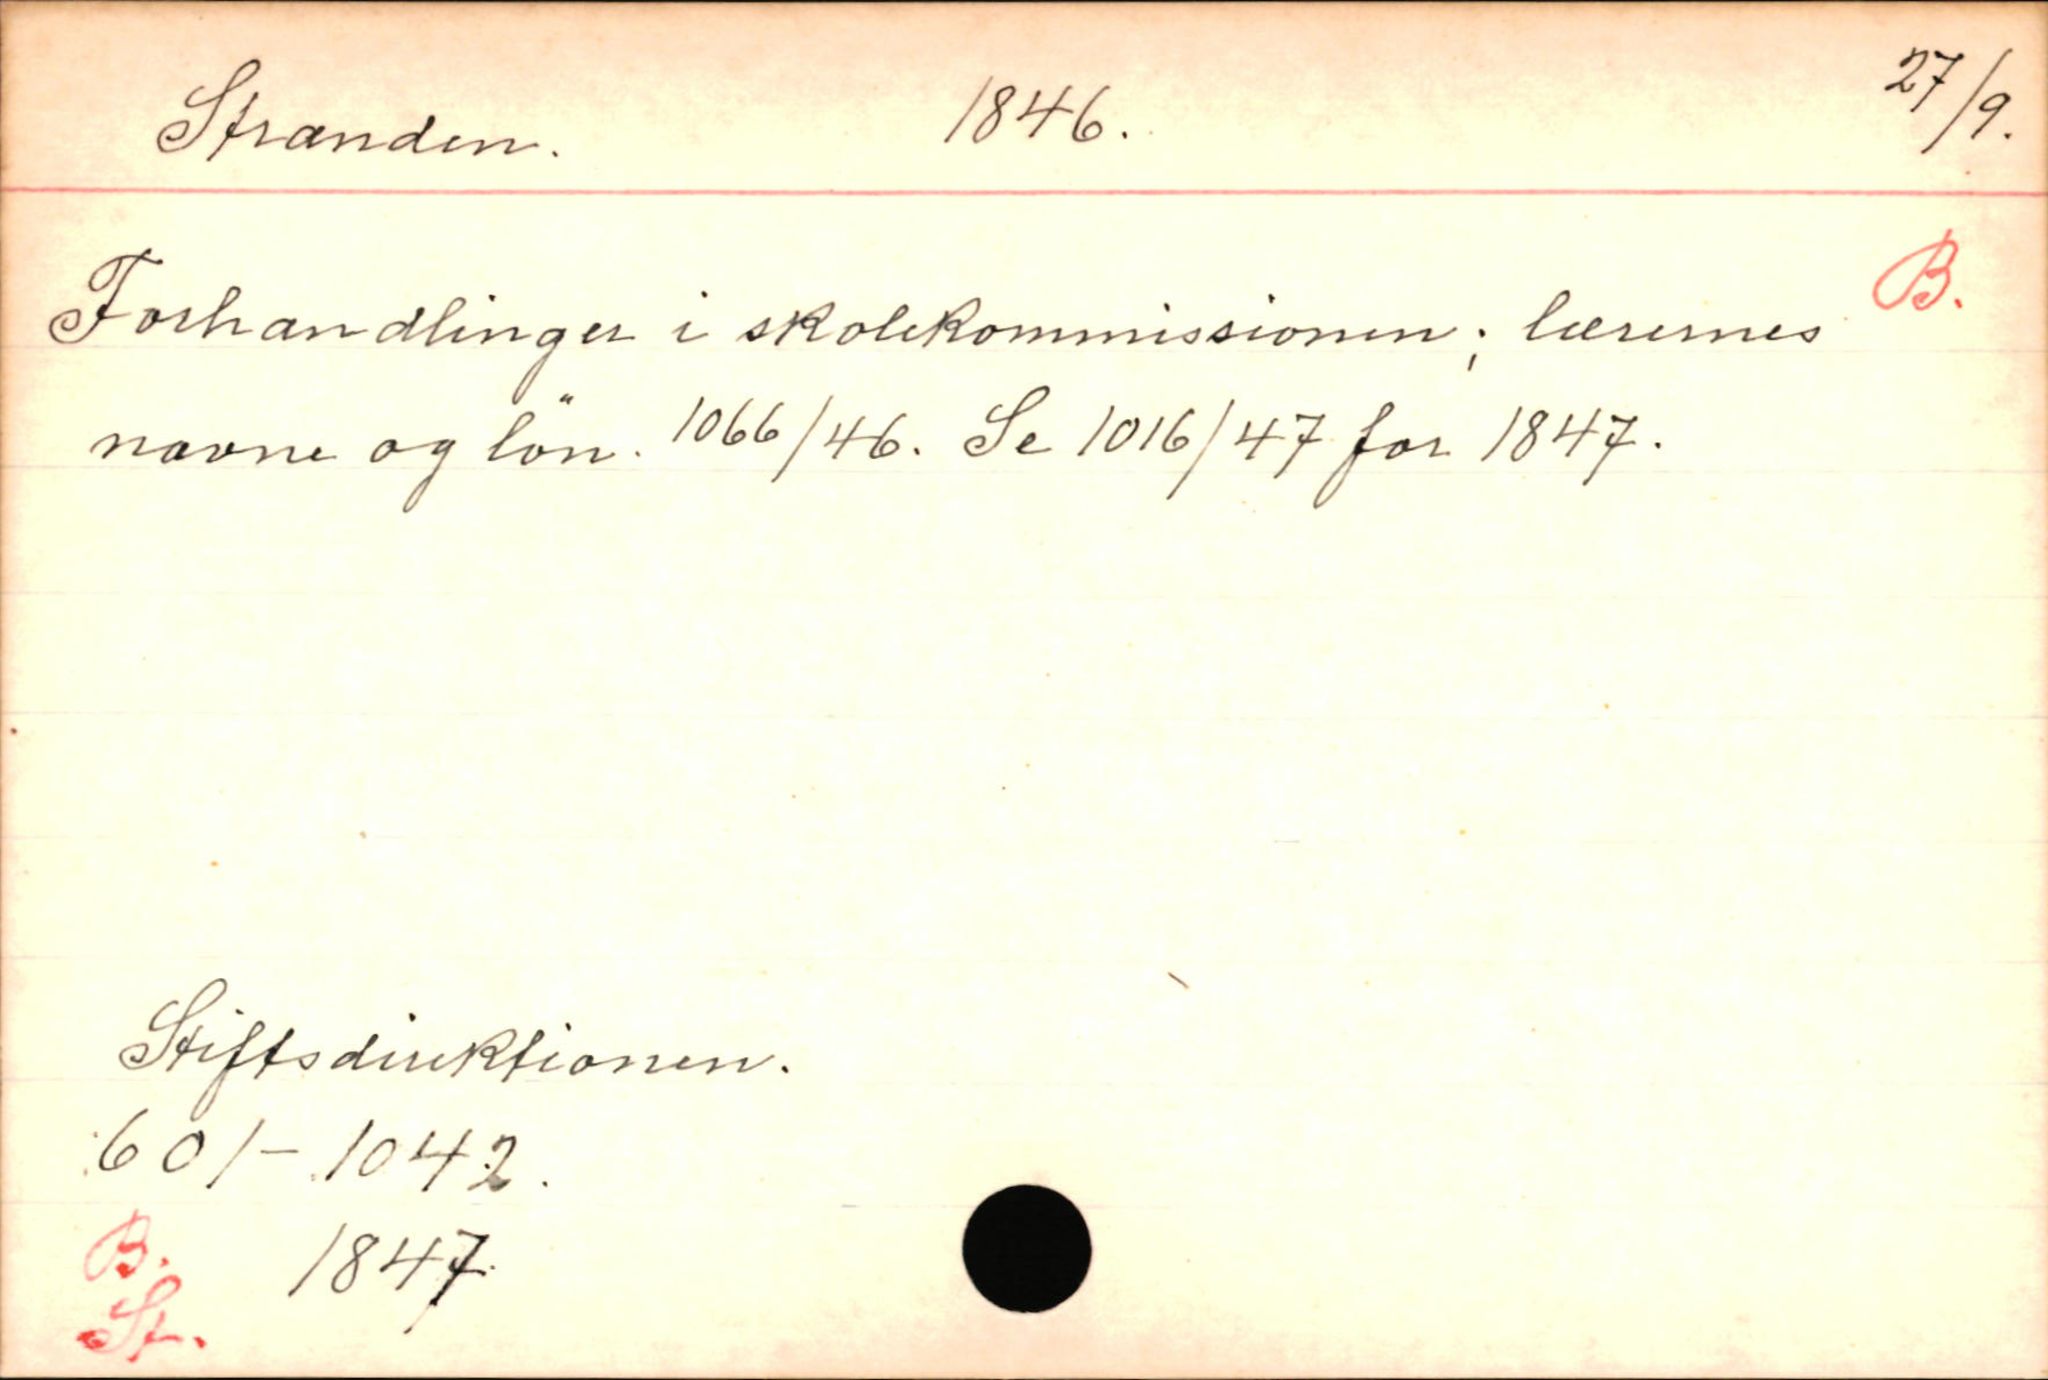 Stranden. 1846. 27/9.
B.
Forhandlinger i skolekommissionen; lærernes
navne og lön. 1066/46. Se 1016/47 for 1847.
Stiftsdirektionen.
601 - 1042.
B. 1847.
St.